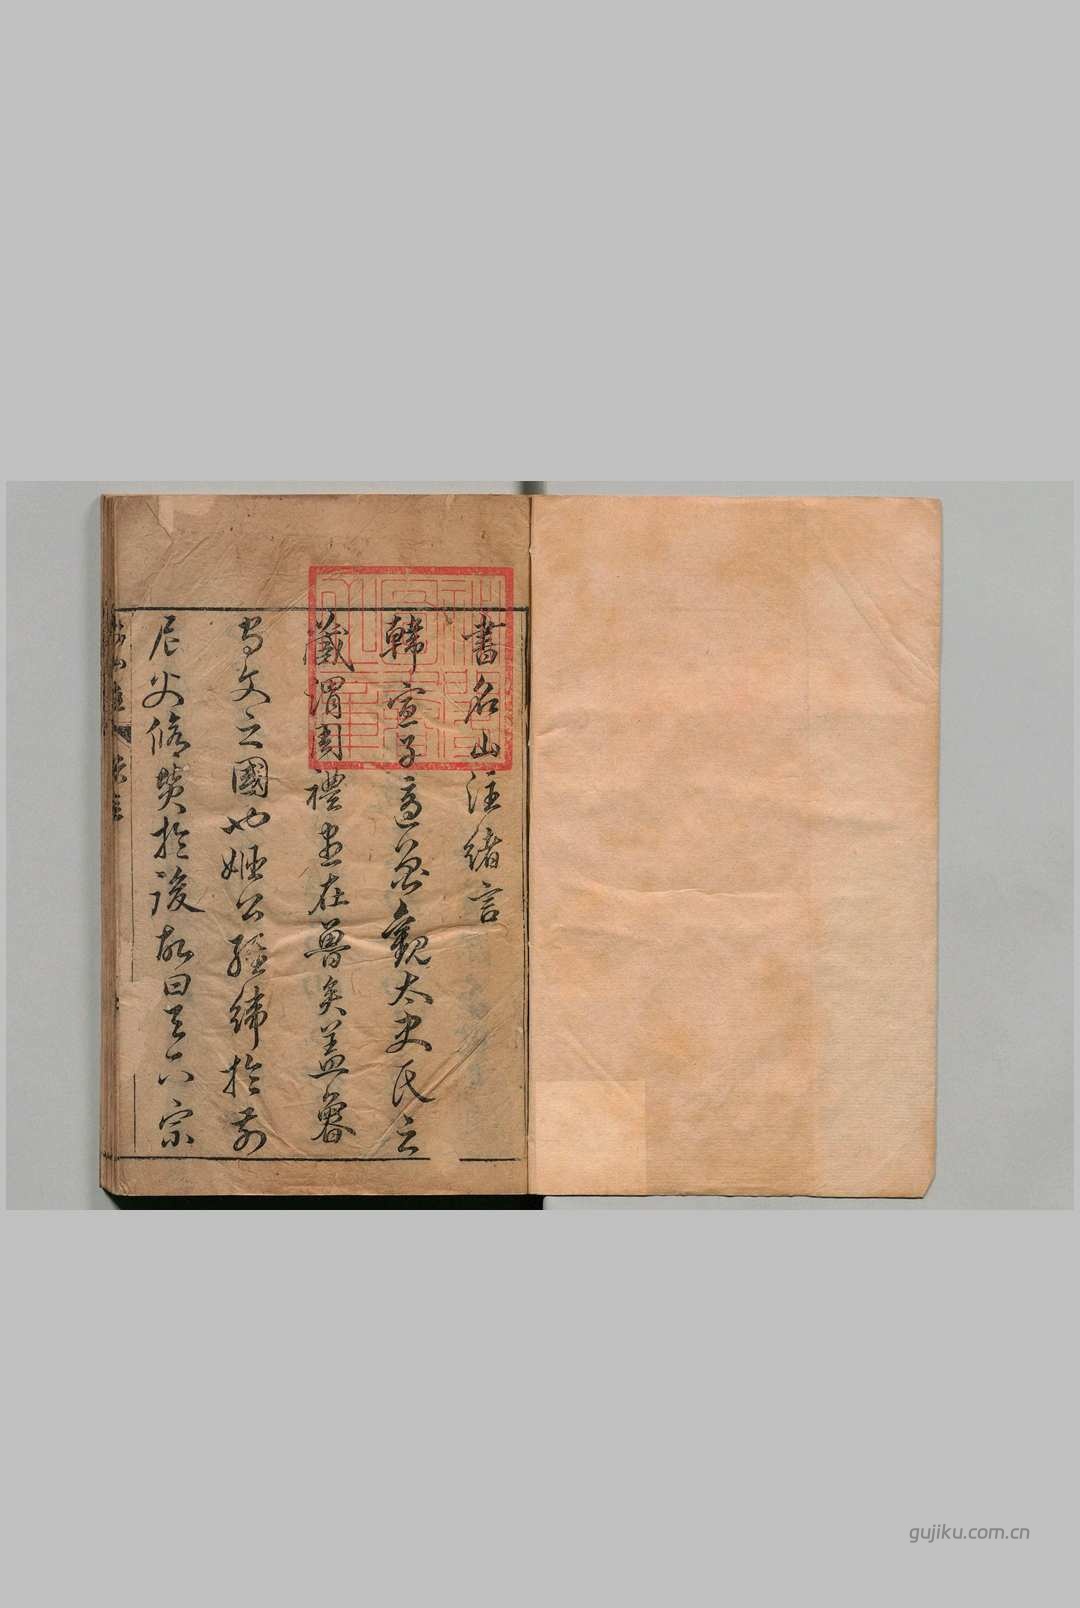 書名山注緒言
韓宣子適魯觀太史氏之
藏謂周禮盡在魯矣蓋魯
為文之國也姬公經緯於前
尼父脩贊於後故曰天下宗
gujiku.com.cn